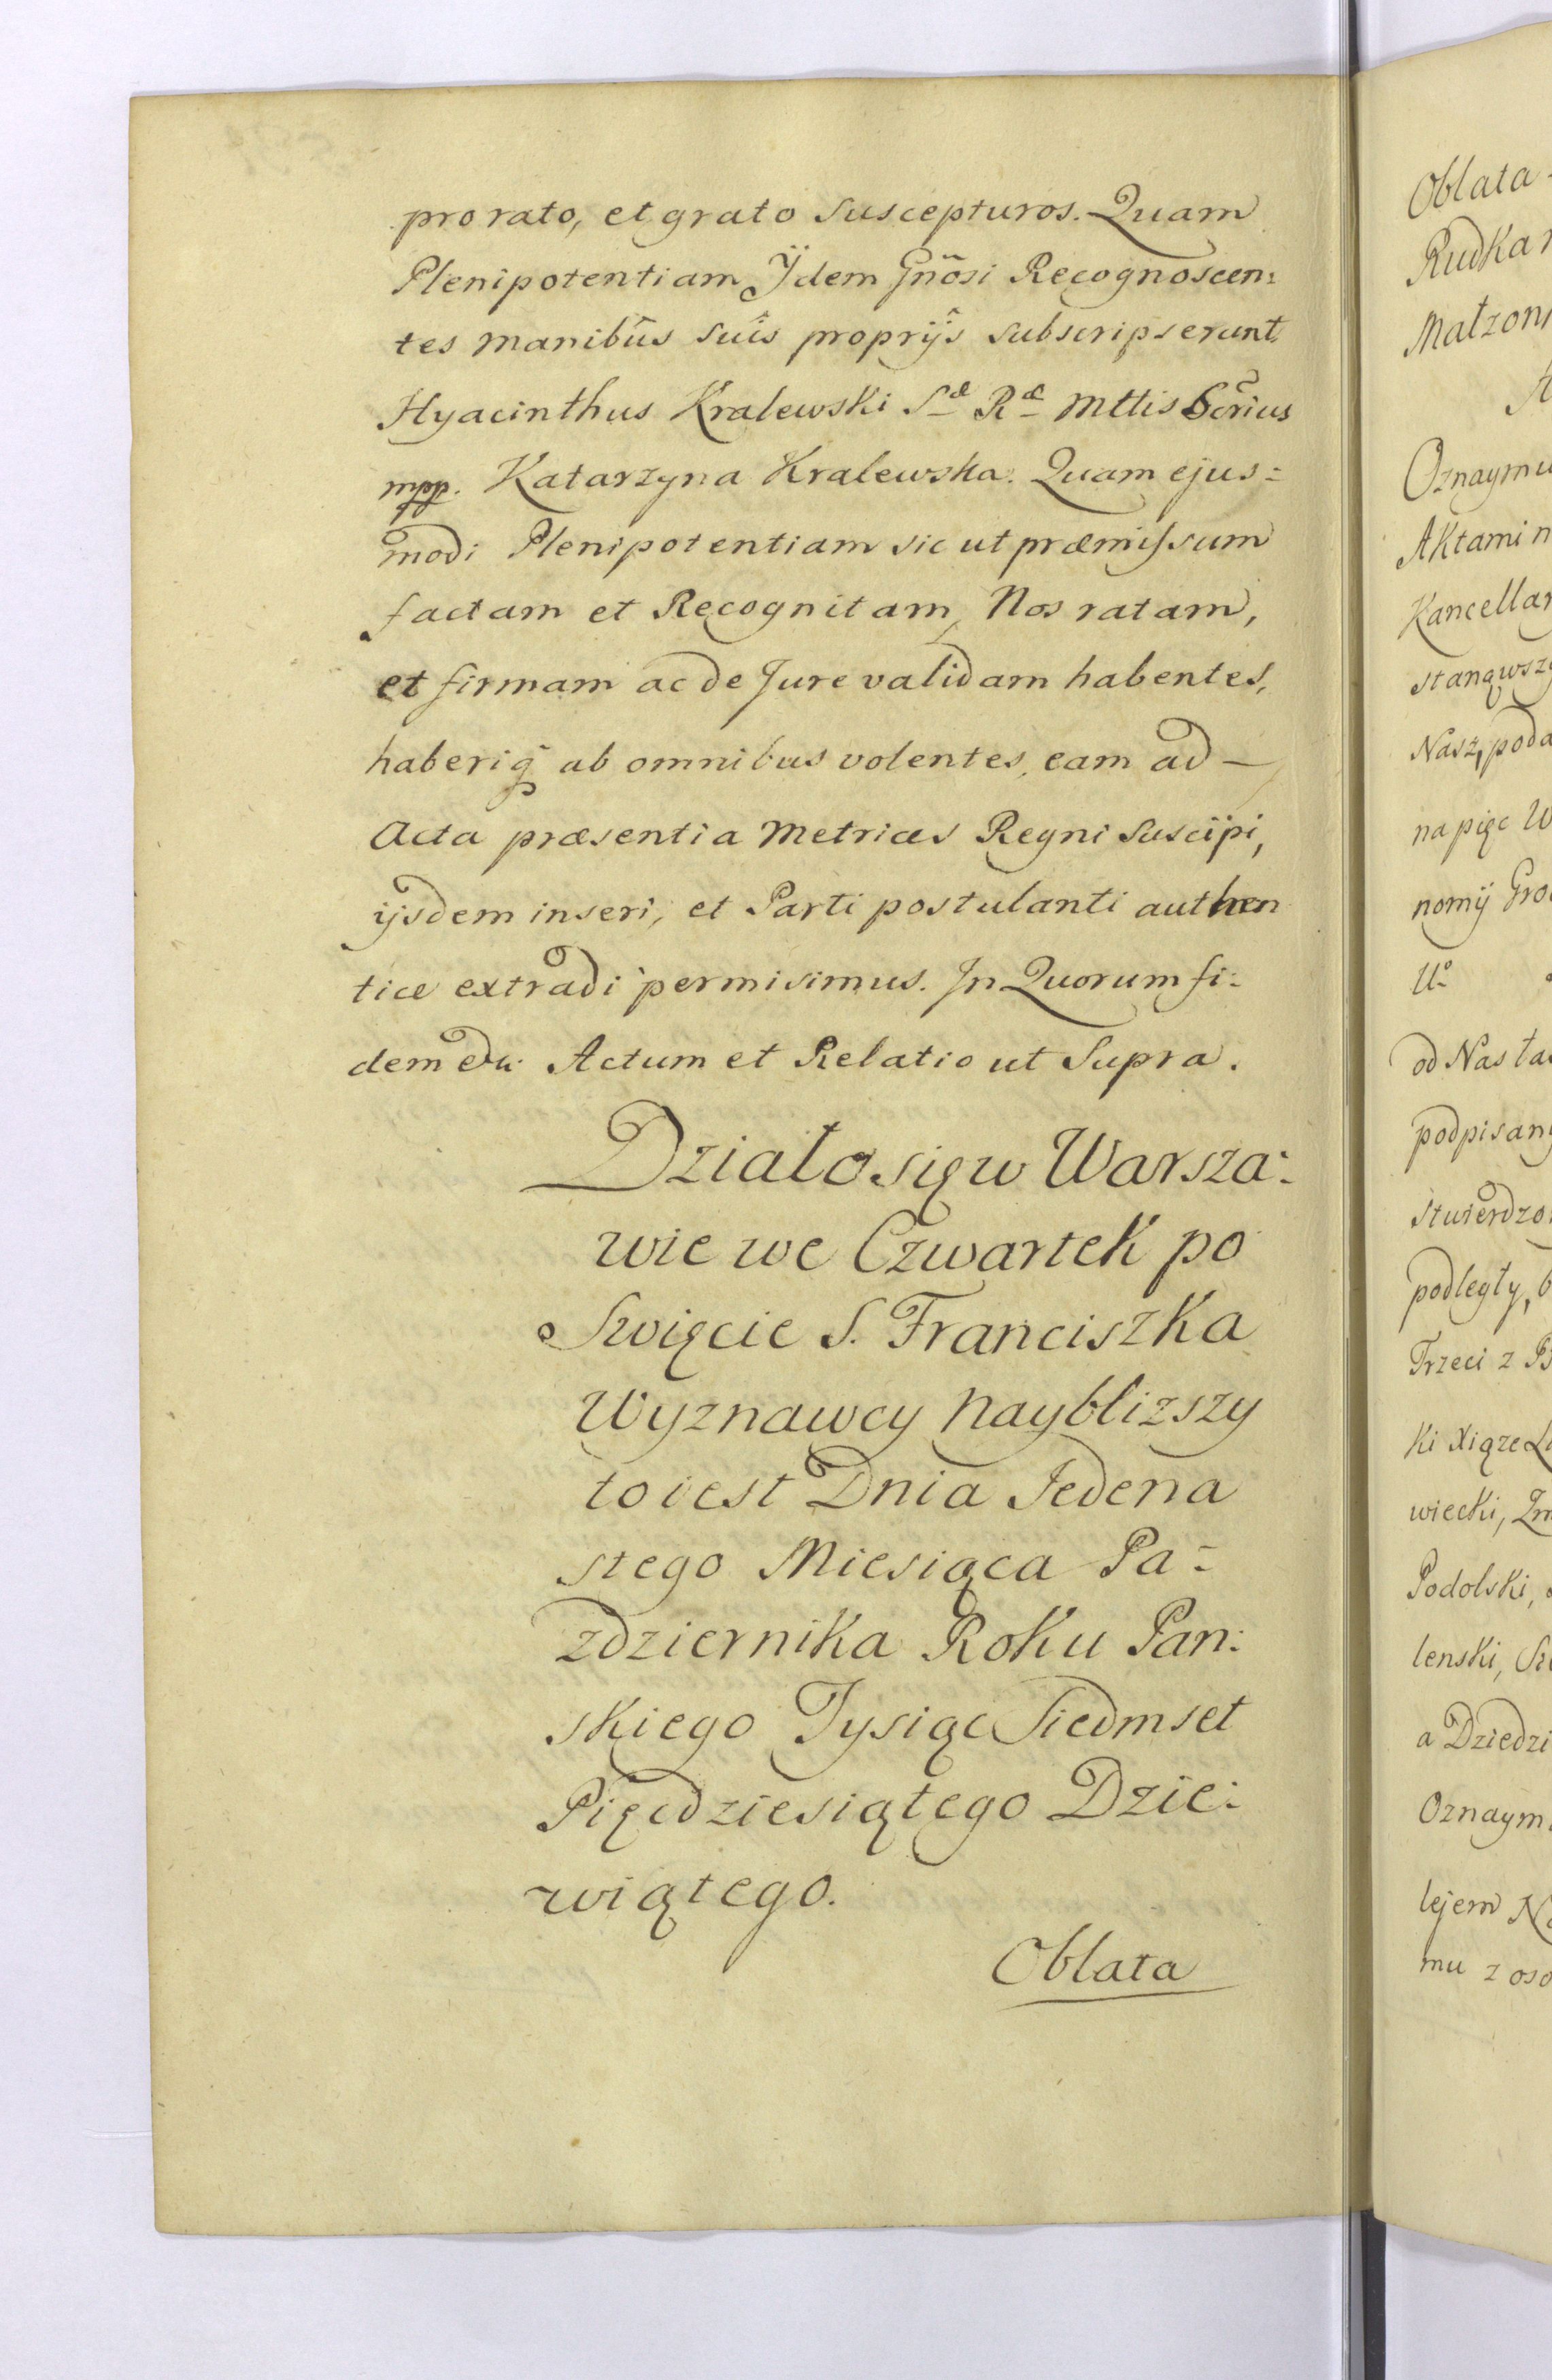 pro rato, et grato suscepturos. Quam
Plenipotentiam Ijdem Gnosi Recognoscen=
tes manibus suis proprijs subscripserunt
Hyacinthus Kralewski Sæ Ræ Mttis Scrius
mpp. Katarzyna Kralewska. Quam ejus=
modi Plenipotentiam sic ut præmissum
factam et Recognitam, Nos ratam,
et firmam ac de Jure validam habentes,
haberiq ab omnibus volentes, eam ad —
Acta præsentia Metrices Regni suscipi,
ijsdem inseri, et Parti postulanti authen
tice extradi permisimus. In Quorum fi=
dem Actum et Relatio ut Supra.
Działo się w Warsza=
wie we Czwartek po
Swięcie S. Franciszka
Wyznawcy naybliższy
to iest Dnia Jedena
stego Miesiąca Pa=
zdziernika Roku Pan=
skiego Tysiąc Siedmset
Pięcdziesiątego Dzie=
wiątego.
Oblata
Oblata
Rudka
Małzon
Oznaymu
Aktami n
Kancellar
stanąwszy
Nasz, poda
na pięc W
nomij Gro
Uo
od Nas ła
podpisany
stwierdzo
podległy, b
Trzeci z B
ki Xiąże L
wiecki, Zm
Podolski,
lenski, S
a Dziedzi
Oznaym
lejem N
mu z oso